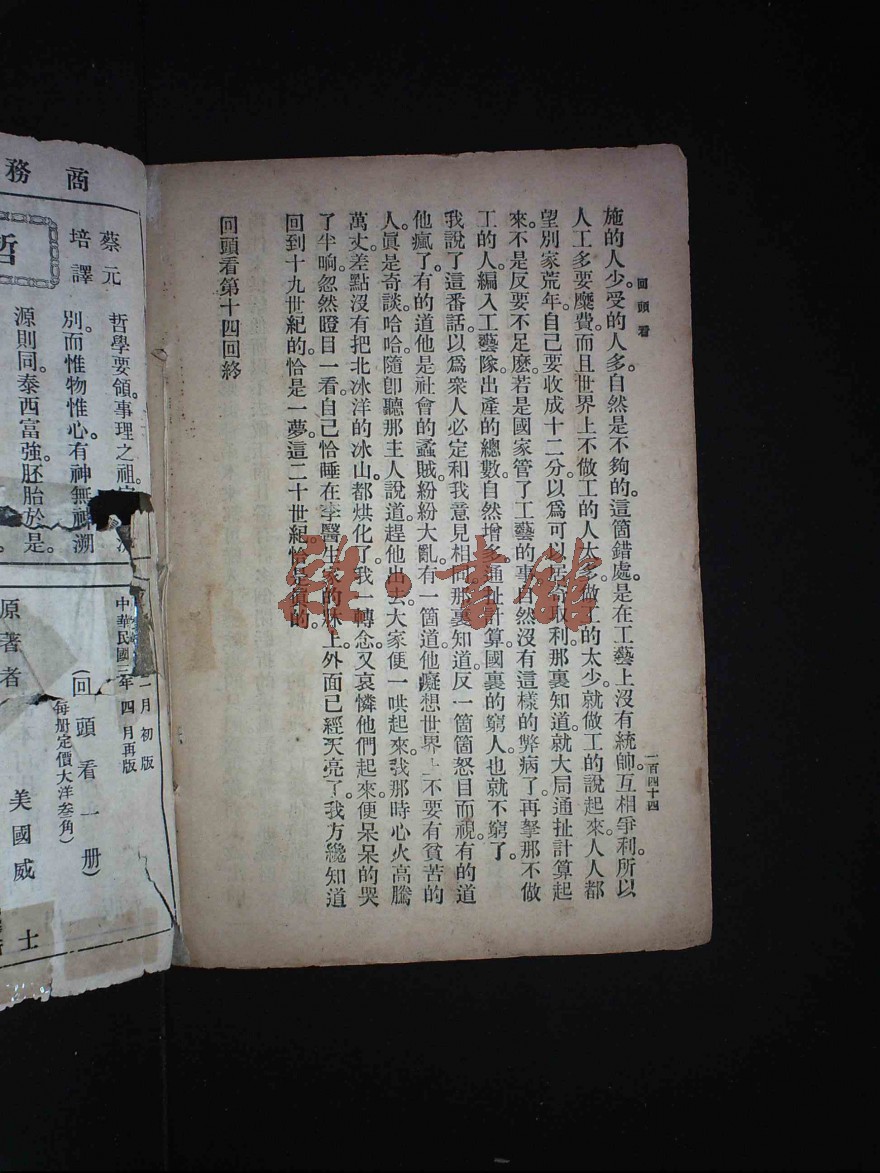 回頭看
一百四十四
施的人少。受的人多。自然是不夠的。這箇錯處。是在工藝上沒有統帥。互相爭利。所以
人工多要糜費。而且世界上不做工的人太多。做工的太少。就做工的說起來。人人都
望別家荒年。自己要收成十二分。以爲可以居奇取利。那裏知道。就大局通扯計算起
來。不是反要不足麽。若是國家管了工藝的事。自然沒有這樣的弊病了。再拏那不做
工的人。編入工藝隊。出產的總數。自然增多。通扯計算。國裏的窮人。也就不窮了。
我說了這番話。以爲衆人必定和我意見相同。那裏知道。反一箇箇怒目而視。有的道
他瘋了。有的道他是社會的蟊賊。紛紛大亂。有一箇道他癡想世界上不要有貧苦的
人。眞是奇談。哈哈。隨卽聽那主人說道。趕他出去。大家便一哄起來。我那時心火高騰
萬丈。差點沒有把北冰洋的冰山都烘化了。我一轉念。又哀憐他們起來。便呆呆的哭
了半晌。忽然瞪目一看。自己恰睡在李醫生家的牀上。外面已經天亮了。我方纔知道
回到十九世紀的。恰是一夢。這二十世紀。恰是眞的。
回頭看第十四回終
商務
哲
蔡元
培譯
哲學要領。事理之祖。
別而惟物惟心。有神無神。溯
源則同。泰西富強。胚胎於是。
月初版
中華民國三年四月再版
（回頭看一册）
每册定價大洋叁角）
原著者
美國威
士